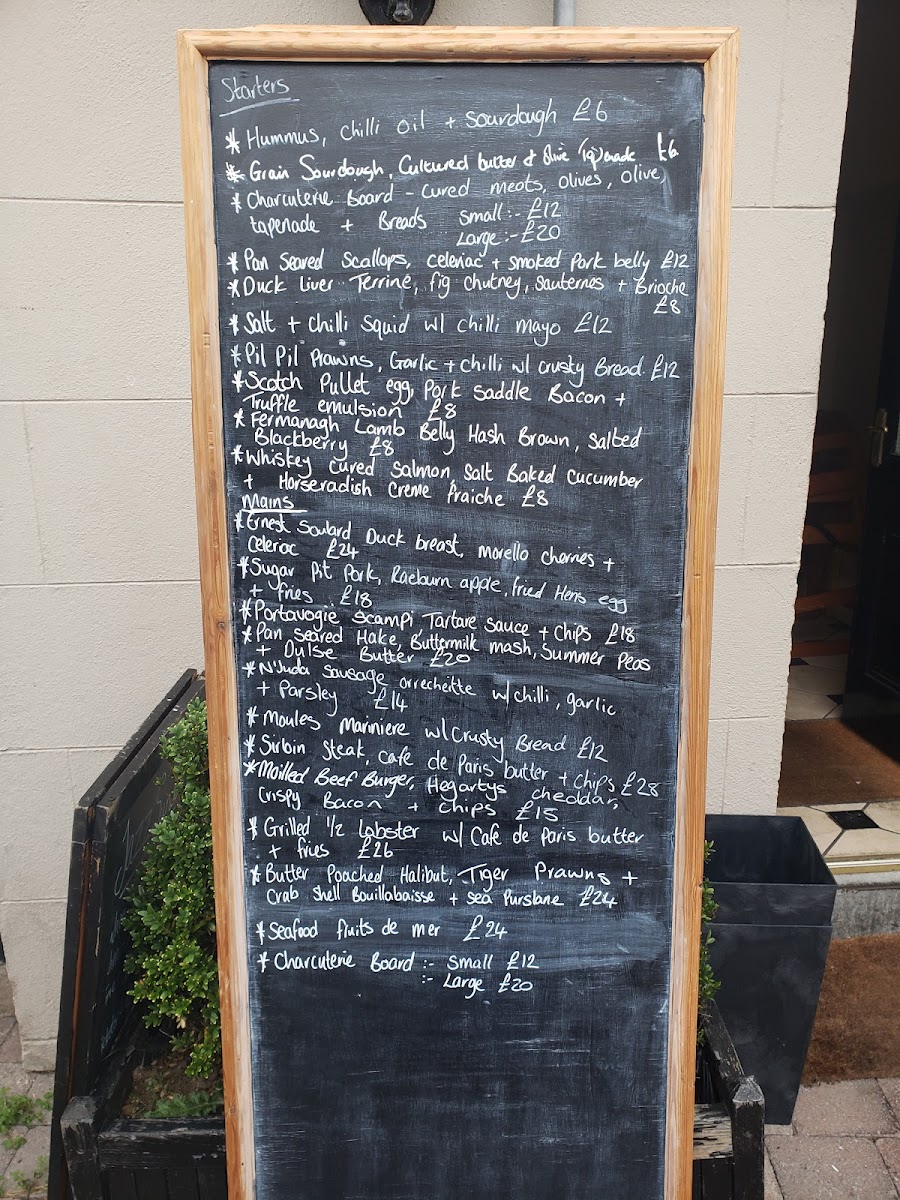 Starters
* Hummus, chilli oil + sourdough £6
* Grain Sourdough, Cultured butter & Olive Tapenade £6
* Charcuterie Board - cured meats, olives, olive
tapenade + Breads Small :- £12
Large :- £20
* Pan Seared Scallops, celeriac + smoked pork belly £12
* Duck Liver Terrine, fig chutney, sauternes + Brioche
£8
* Salt + chilli squid w/ chilli mayo £12
* Pil Pil Prawns, Garlic + chilli w/ crusty Bread £12
* Scotch Pullet egg, Pork saddle Bacon +
Truffle emulsion £8
* Fermanagh Lamb Belly Hash Brown, salted
Blackberry £8
* Whiskey cured salmon, Salt Baked cucumber
+ Horseradish creme fraiche £8
Mains
* Ernest Soulard Duck breast, morello cherries +
Celeriac £24
* Sugar Pit Pork, Raeburn apple, fried Hens egg
+ fries £18
* Portavogie Scampi Tartare sauce + chips £18
* Pan seared Hake, Buttermilk mash, Summer Peas
+ Dulse Butter £20
* N'Juda Sausage orrecheitte w/ chilli, garlic
+ Parsley £14
* Moules Mariniere w/ Crusty Bread £12
* Sirloin Steak, cafe de Paris butter + chips £28
* Moilled Beef Burger, Hegartys cheddar,
Crispy Bacon + chips £15
* Grilled 1/2 Lobster w/ Cafe de Paris butter
+ fries £26
* Butter Poached Halibut, Tiger Prawns +
Crab Shell Bouillabaisse + sea Purslane £24
* Seafood fruits de mer £24
* Charcuterie Board :- Small £12
:- Large £20